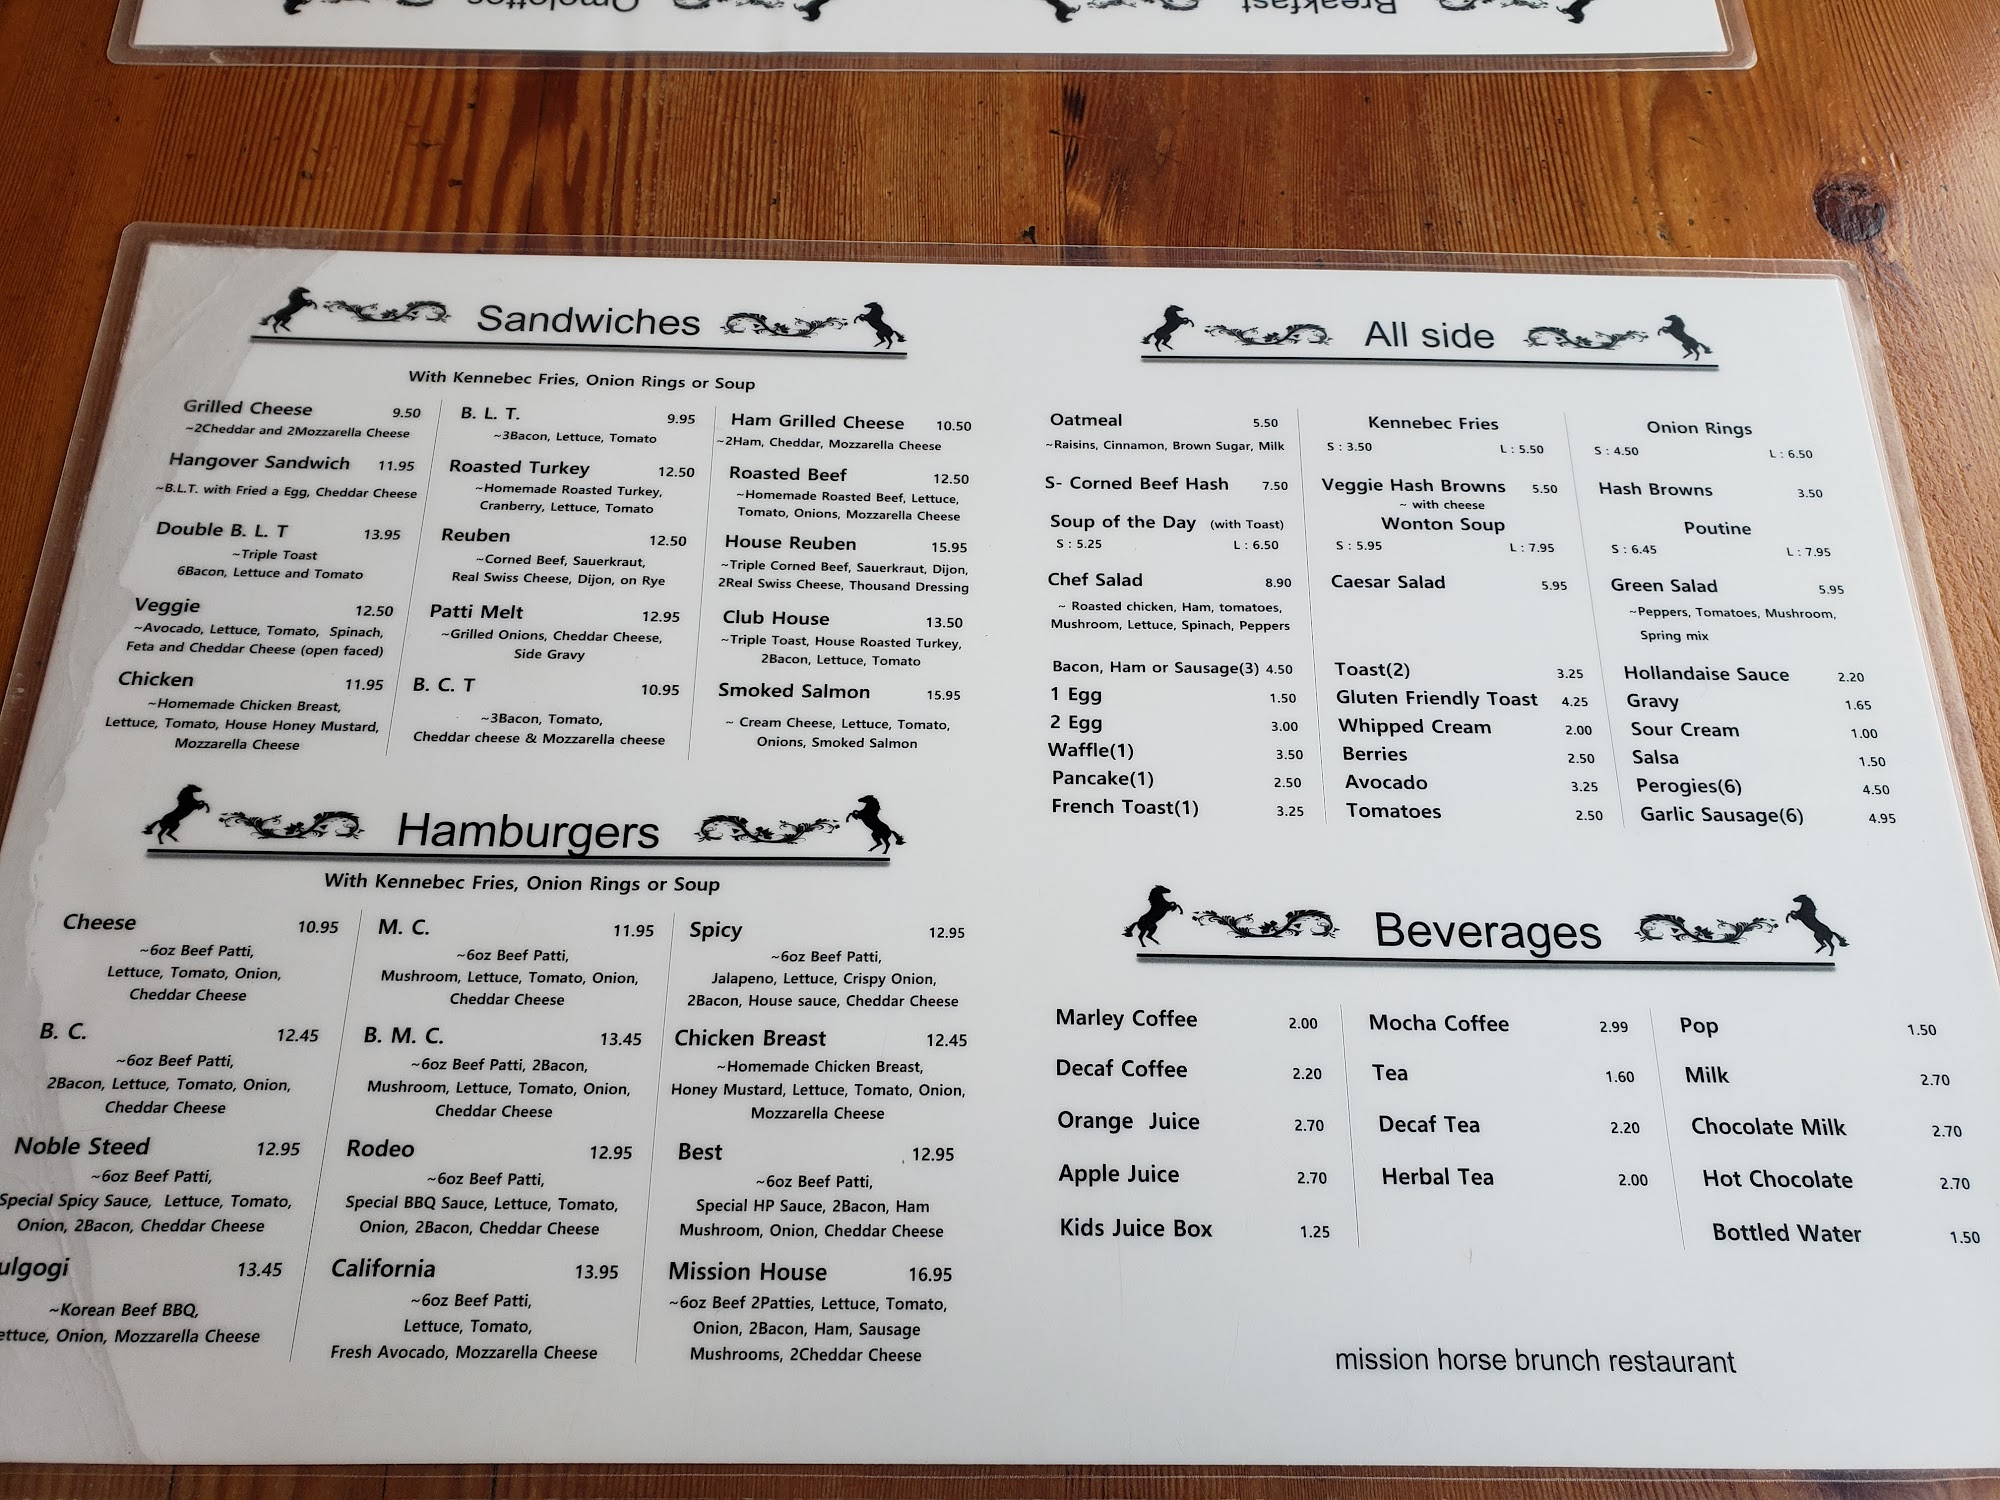 Omelettes
Breakfast
Sandwiches
With Kennebec Fries, Onion Rings or Soup
Grilled Cheese 9.50
~2Cheddar and 2Mozzarella Cheese
Hangover Sandwich 11.95
~B.L.T. with Fried a Egg, Cheddar Cheese
Double B. L. T 13.95
~Triple Toast
6Bacon, Lettuce and Tomato
Veggie 12.50
~Avocado, Lettuce, Tomato, Spinach,
Feta and Cheddar Cheese (open faced)
Chicken 11.95
~Homemade Chicken Breast,
Lettuce, Tomato, House Honey Mustard,
Mozzarella Cheese
B. L. T. 9.95
~3Bacon, Lettuce, Tomato
Roasted Turkey 12.50
~Homemade Roasted Turkey,
Cranberry, Lettuce, Tomato
Reuben 12.50
~Corned Beef, Sauerkraut,
Real Swiss Cheese, Dijon, on Rye
Patti Melt 12.95
~Grilled Onions, Cheddar Cheese,
Side Gravy
B. C. T 10.95
~3Bacon, Tomato,
Cheddar cheese & Mozzarella cheese
Ham Grilled Cheese 10.50
~2Ham, Cheddar, Mozzarella Cheese
Roasted Beef 12.50
~Homemade Roasted Beef, Lettuce,
Tomato, Onions, Mozzarella Cheese
House Reuben 15.95
~Triple Corned Beef, Sauerkraut, Dijon,
2Real Swiss Cheese, Thousand Dressing
Club House 13.50
~Triple Toast, House Roasted Turkey,
2Bacon, Lettuce, Tomato
Smoked Salmon 15.95
~ Cream Cheese, Lettuce, Tomato,
Onions, Smoked Salmon
Hamburgers
With Kennebec Fries, Onion Rings or Soup
Cheese 10.95
~6oz Beef Patti,
Lettuce, Tomato, Onion,
Cheddar Cheese
B. C. 12.45
~6oz Beef Patti,
2Bacon, Lettuce, Tomato, Onion,
Cheddar Cheese
Noble Steed 12.95
~6oz Beef Patti,
Special Spicy Sauce, Lettuce, Tomato,
Onion, 2Bacon, Cheddar Cheese
ulgogi 13.45
~Korean Beef BBQ,
ettuce, Onion, Mozzarella Cheese
M. C. 11.95
~6oz Beef Patti,
Mushroom, Lettuce, Tomato, Onion,
Cheddar Cheese
B. M. C. 13.45
~6oz Beef Patti, 2Bacon,
Mushroom, Lettuce, Tomato, Onion,
Cheddar Cheese
Rodeo 12.95
~6oz Beef Patti,
Special BBQ Sauce, Lettuce, Tomato,
Onion, 2Bacon, Cheddar Cheese
California 13.95
~6oz Beef Patti,
Lettuce, Tomato,
Fresh Avocado, Mozzarella Cheese
Spicy 12.95
~6oz Beef Patti,
Jalapeno, Lettuce, Crispy Onion,
2Bacon, House sauce, Cheddar Cheese
Chicken Breast 12.45
~Homemade Chicken Breast,
Honey Mustard, Lettuce, Tomato, Onion,
Mozzarella Cheese
Best 12.95
~6oz Beef Patti,
Special HP Sauce, 2Bacon, Ham
Mushroom, Onion, Cheddar Cheese
Mission House 16.95
~6oz Beef 2Patties, Lettuce, Tomato,
Onion, 2Bacon, Ham, Sausage
Mushrooms, 2Cheddar Cheese
All side
Oatmeal 5.50
~Raisins, Cinnamon, Brown Sugar, Milk
S- Corned Beef Hash 7.50
Soup of the Day (with Toast)
S : 5.25 L : 6.50
Chef Salad 8.90
~ Roasted chicken, Ham, tomatoes,
Mushroom, Lettuce, Spinach, Peppers
Bacon, Ham or Sausage(3) 4.50
1 Egg 1.50
2 Egg 3.00
Waffle(1) 3.50
Pancake(1) 2.50
French Toast(1) 3.25
Kennebec Fries
S : 3.50 L : 5.50
Veggie Hash Browns 5.50
~ with cheese
Wonton Soup
S : 5.95 L : 7.95
Caesar Salad 5.95
Toast(2) 3.25
Gluten Friendly Toast 4.25
Whipped Cream 2.00
Berries 2.50
Avocado 3.25
Tomatoes 2.50
Onion Rings
S : 4.50 L : 6.50
Hash Browns 3.50
Poutine
S : 6.45 L : 7.95
Green Salad 5.95
~Peppers, Tomatoes, Mushroom,
Spring mix
Hollandaise Sauce 2.20
Gravy 1.65
Sour Cream 1.00
Salsa 1.50
Perogies(6) 4.50
Garlic Sausage(6) 4.95
Beverages
Marley Coffee 2.00
Decaf Coffee 2.20
Orange Juice 2.70
Apple Juice 2.70
Kids Juice Box 1.25
Mocha Coffee 2.99
Tea 1.60
Decaf Tea 2.20
Herbal Tea 2.00
Pop 1.50
Milk 2.70
Chocolate Milk 2.70
Hot Chocolate 2.70
Bottled Water 1.50
mission horse brunch restaurant